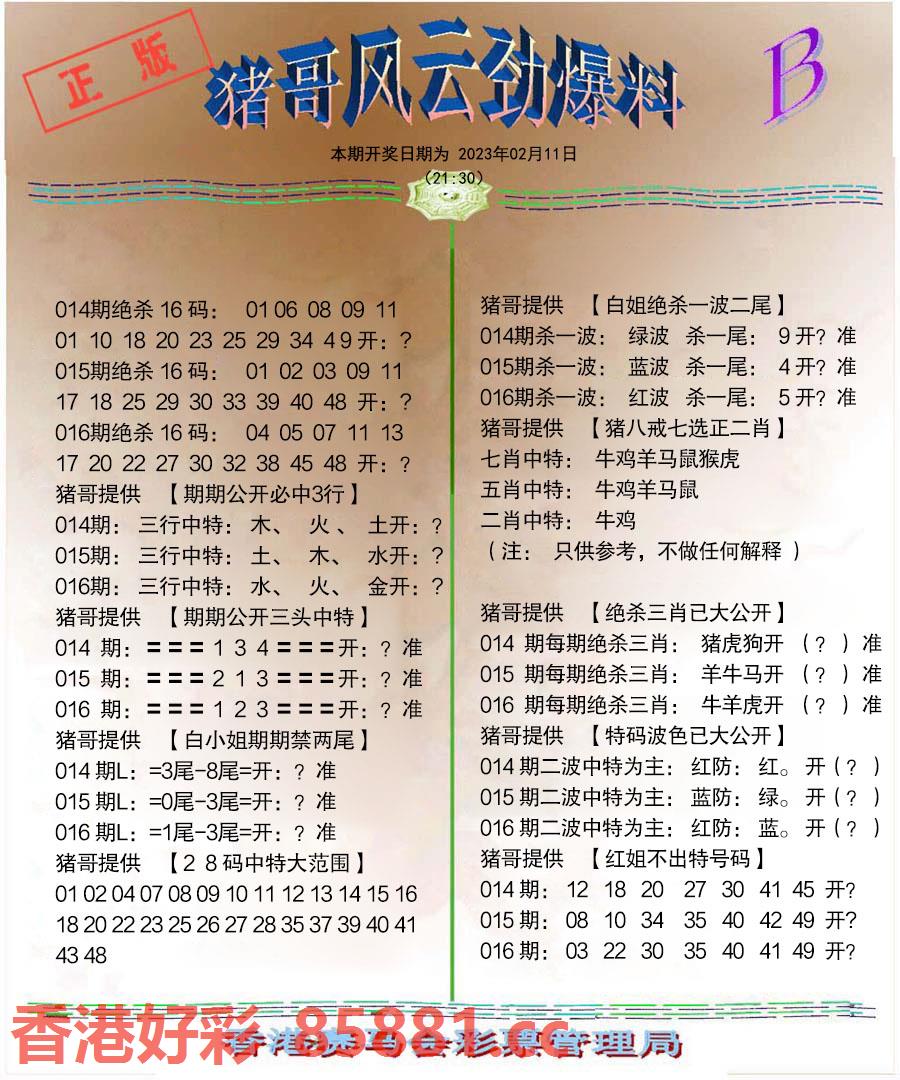 正版
猪哥风云劲爆料
B
本期开奖日期为 2023年02月11日
(21:30)
014期绝杀 16 码： 01 06 08 09 11
01 10 18 20 23 25 29 34 49 开：?
015期绝杀 16 码： 01 02 03 09 11
17 18 25 29 30 33 39 40 48 开：?
016期绝杀 16 码： 04 05 07 11 13
17 20 22 27 30 32 38 45 48 开：?
猪哥提供 【期期公开必中3行】
014期： 三行中特： 木、 火 、 土开：?
015期： 三行中特： 土、 木、 水开：?
016期： 三行中特： 水、 火、 金开：?
猪哥提供 【期期公开三头中特】
014 期：===1 3 4===开：? 准
015 期：===2 1 3===开：? 准
016 期：===1 2 3===开：? 准
猪哥提供 【白小姐期期禁两尾】
014 期L：=3尾-8尾=开：? 准
015 期L：=0尾-3尾=开：? 准
016 期L：=1尾-3尾=开：? 准
猪哥提供 【28码中特大范围】
01 02 04 07 08 09 10 11 12 13 14 15 16
18 20 22 23 25 26 27 28 35 37 39 40 41
43 48
猪哥提供 【白姐绝杀一波二尾】
014期杀一波： 绿波 杀一尾： 9开? 准
015期杀一波： 蓝波 杀一尾： 4开? 准
016期杀一波： 红波 杀一尾： 5开? 准
猪哥提供 【猪八戒七选正二肖】
七肖中特： 牛鸡羊马鼠猴虎
五肖中特： 牛鸡羊马鼠
二肖中特： 牛鸡
（注： 只供参考，不做任何解释 ）
猪哥提供 【绝杀三肖已大公开】
014 期每期绝杀三肖： 猪虎狗开 （? ）准
015 期每期绝杀三肖： 羊牛马开 （? ）准
016 期每期绝杀三肖： 牛羊虎开 （? ）准
猪哥提供 【特码波色已大公开】
014 期二波中特为主： 红防： 红。 开（? ）
015 期二波中特为主： 蓝防： 绿。 开（? ）
016 期二波中特为主： 红防： 蓝。 开（? ）
猪哥提供 【红姐不出特号码】
014 期： 12 18 20 27 30 41 45 开?
015 期： 08 10 34 35 40 42 49 开?
016 期： 03 22 30 35 40 41 49 开?
香港好彩 85881.cc
香港赛马会彩票管理局